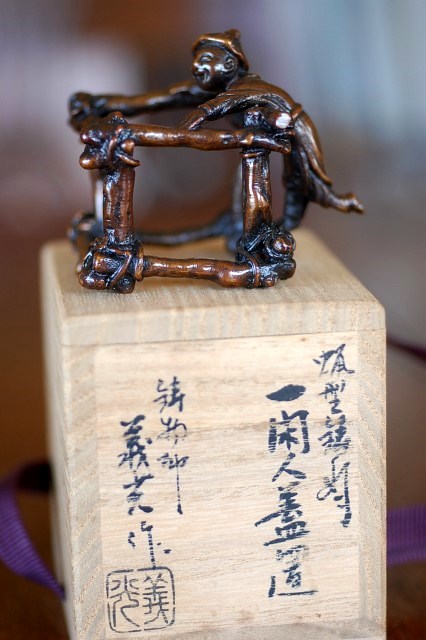 蝋型鋳彫
一閑人蓋置
鋳物師
義光作
義光